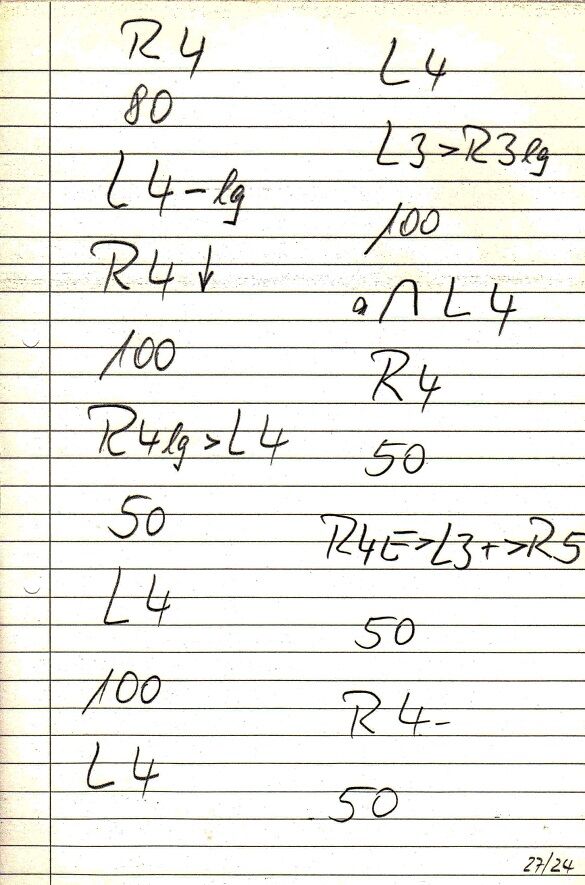 R 4
80
L 4 - lg
R 4 ↓
100
R 4 lg > L 4
50
L 4
100
L 4
L 4
L 3 > R 3 lg
100
a ∩ L 4
R 4
50
R 4 E > L 3 + > R 5
50
R 4 -
50
27/24